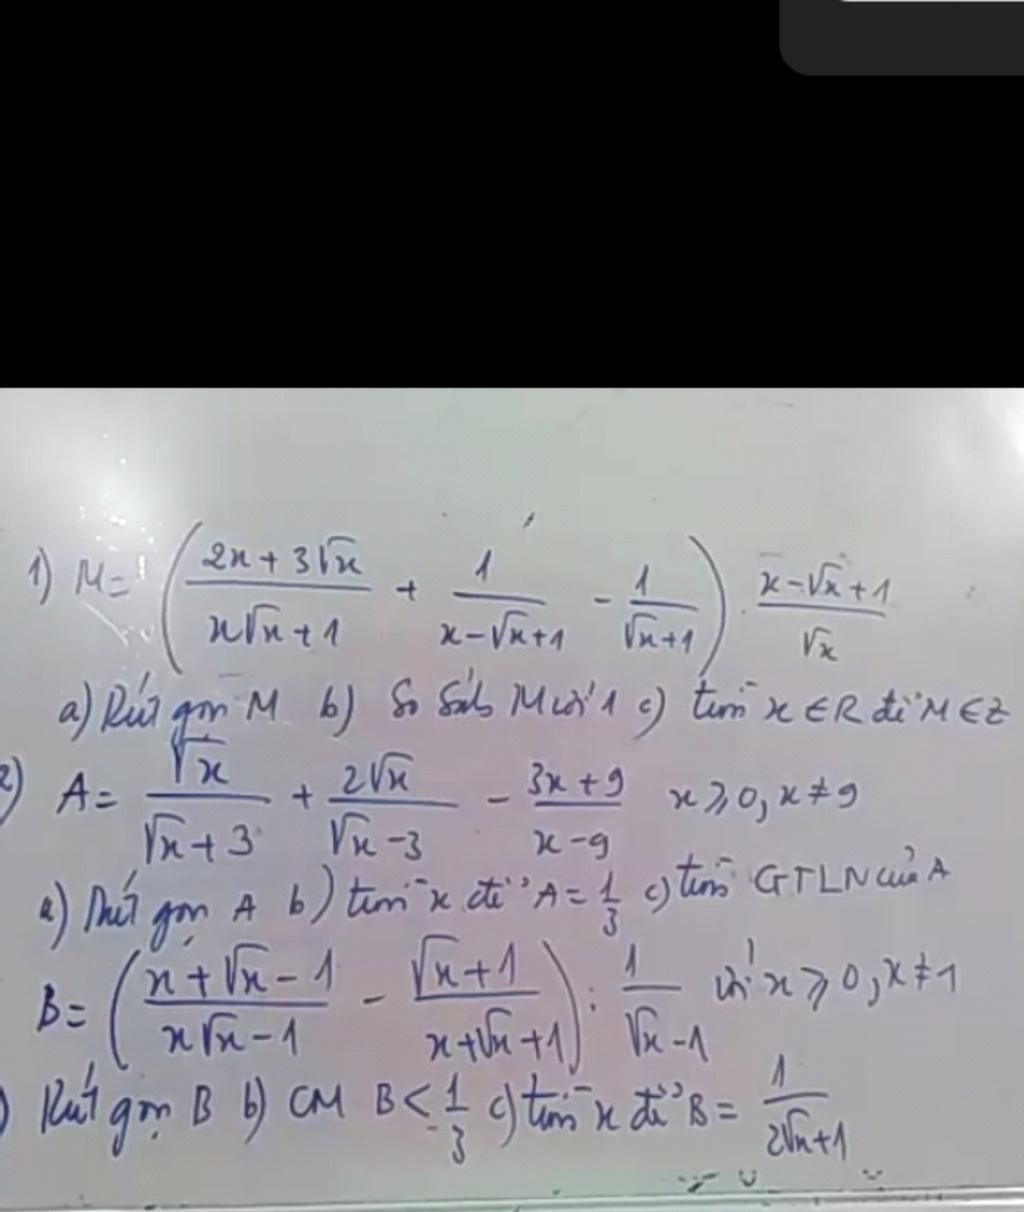 1) M = ( (2x + 3√x)/(x√x + 1) + 1/(x - √x + 1) - 1/(√x + 1) ) . (x - √x + 1)/√x
a) Rút gọn M b) So Sánh M với 1 c) tìm x ∈ R để M ∈ Z
2) A = √x/(√x + 3) + 2√x/(√x - 3) - (3x + 9)/(x - 9) x ⩾ 0, x ≠ 9
a) Rút gọn A b) tìm x để A = 1/3 c) tìm GTLN của A
B = ( (x + √x - 1)/(x√x - 1) - (√x + 1)/(x + √x + 1) ) : 1/(√x - 1) với x ⩾ 0, x ≠ 1
) Rút gọn B b) CM B < 1/3 c) tìm x để B = 1/(2√x + 1)